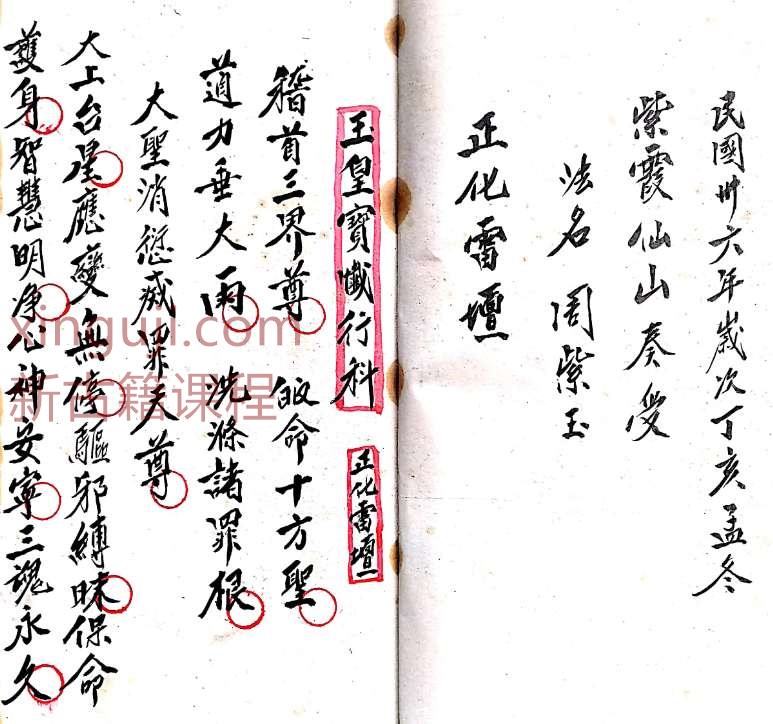 民國卅六年歲次丁亥孟冬
紫霞仙山奏受
法名 周紫玉
正化雷壇
玉皇寶懺行科 正化雷壇
稽首三界尊 皈命十方聖
道力垂大雨 洗滌諸罪根
大聖消愆滅罪天尊
大上台星應變無停驅邪縛昧保命
護身智慧明净心神安寧三魂永久
xinguji.com
新古籍课程